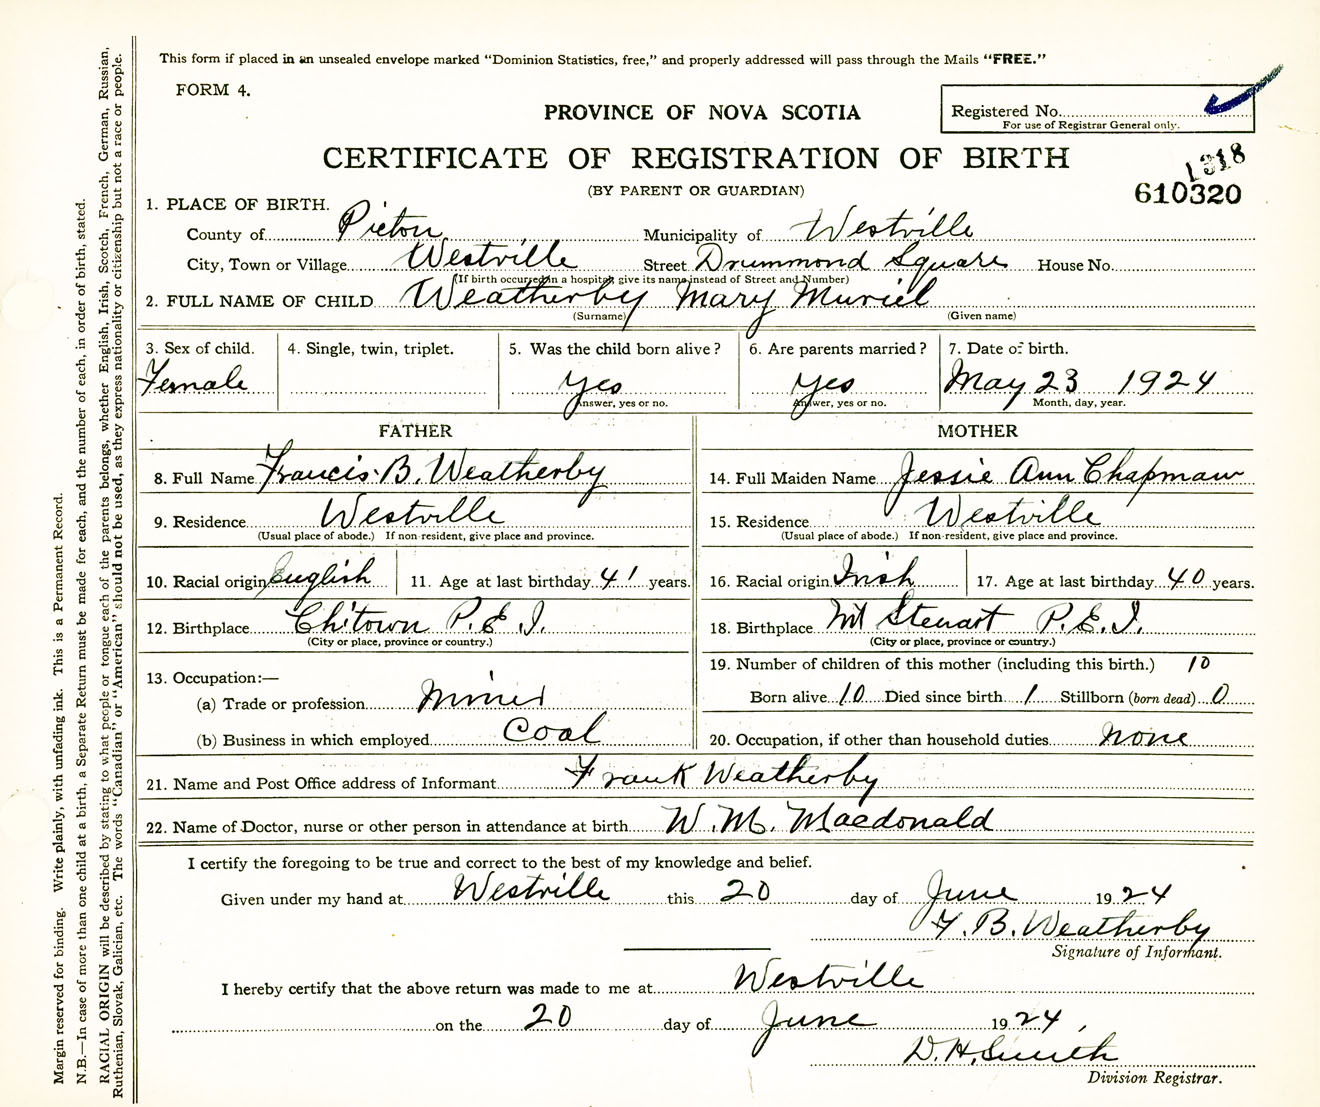 This form if placed in an unsealed envelope marked “Dominion Statistics, free,” and properly addressed will pass through the Mails “FREE.”
FORM 4.
PROVINCE OF NOVA SCOTIA
Registered No.
For use of Registrar General only.
CERTIFICATE OF REGISTRATION OF BIRTH
1318
(BY PARENT OR GUARDIAN)
610320
1. PLACE OF BIRTH.
County of Pictou Municipality of Westville
City, Town or Village Westville Street Drummond Square House No.
(If birth occurred in a hospital, give its name instead of Street and Number)
2. FULL NAME OF CHILD Weatherby Mary Muriel
(Surname) (Given name)
3. Sex of child. 4. Single, twin, triplet. 5. Was the child born alive? 6. Are parents married? 7. Date of birth.
Female yes yes May 23 1924
Answer, yes or no. Answer, yes or no. Month, day, year.
FATHER MOTHER
8. Full Name Francis B. Weatherby 14. Full Maiden Name Jessie Ann Chapman
9. Residence Westville 15. Residence Westville
(Usual place of abode.) If non-resident, give place and province. (Usual place of abode.) If non-resident, give place and province.
10. Racial origin English 11. Age at last birthday 41 years. 16. Racial origin Irish 17. Age at last birthday 40 years.
12. Birthplace Ch'town P.E.I. 18. Birthplace Mt Stewart P.E.I.
(City or place, province or country.) (City or place, province or country.)
13. Occupation:— 19. Number of children of this mother (including this birth.) 10
(a) Trade or profession Miner Born alive 10 Died since birth 1 Stillborn (born dead) 0
(b) Business in which employed Coal 20. Occupation, if other than household duties none
21. Name and Post Office address of Informant Frank Weatherby
22. Name of Doctor, nurse or other person in attendance at birth W. M. Macdonald
I certify the foregoing to be true and correct to the best of my knowledge and belief.
Given under my hand at Westville this 20 day of June 1924
F. B. Weatherby
Signature of Informant.
I hereby certify that the above return was made to me at Westville
on the 20 day of June 1924,
D. H. Smith
Division Registrar.
Margin reserved for binding. Write plainly, with unfading ink. This is a Permanent Record.
N.B.—In case of more than one child at a birth, a Separate Return must be made for each, and the number of each, in order of birth, stated.
RACIAL ORIGIN will be described by stating to what people or tongue each of the parents belongs, whether English, Irish, Scotch, French, German, Russian,
Ruthenian, Slovak, Galician, etc. The words “Canadian” or “American” should not be used, as they express nationality or citizenship but not a race or people.